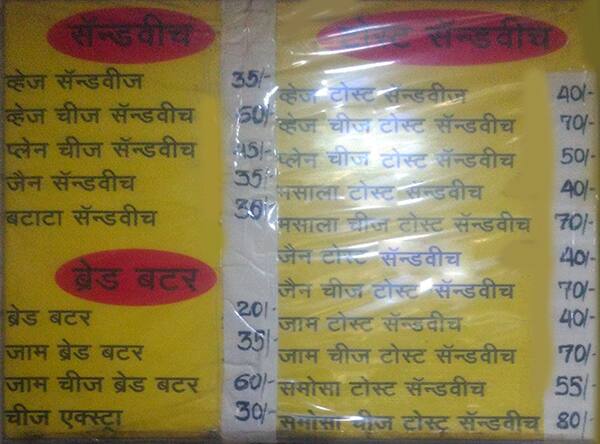 सॅन्डवीच
व्हेज सॅन्डवीज 35/-
व्हेज चीज सॅन्डवीच 60/-
प्लेन चीज सॅन्डवीच 45/-
जैन सॅन्डवीच 35/-
बटाटा सॅन्डवीच 35/-
ब्रेड बटर
ब्रेड बटर 20/-
जाम ब्रेड बटर 35/-
जाम चीज ब्रेड बटर 60/-
चीज एक्स्ट्रा 30/-
टोस्ट सॅन्डवीच
व्हेज टोस्ट सॅन्डवीज 40/-
व्हेज चीज टोस्ट सॅन्डवीच 70/-
प्लेन चीज टोस्ट सॅन्डवीच 50/-
मसाला टोस्ट सॅन्डवीच 40/-
मसाला चीज टोस्ट सॅन्डवीच 70/-
जैन टोस्ट सॅन्डवीच 40/-
जैन चीज टोस्ट सॅन्डवीच 70/-
जाम टोस्ट सॅन्डवीच 40/-
जाम चीज टोस्ट सॅन्डवीच 70/-
समोसा टोस्ट सॅन्डवीच 55/-
समोसा चीज टोस्ट सॅन्डवीच 80/-